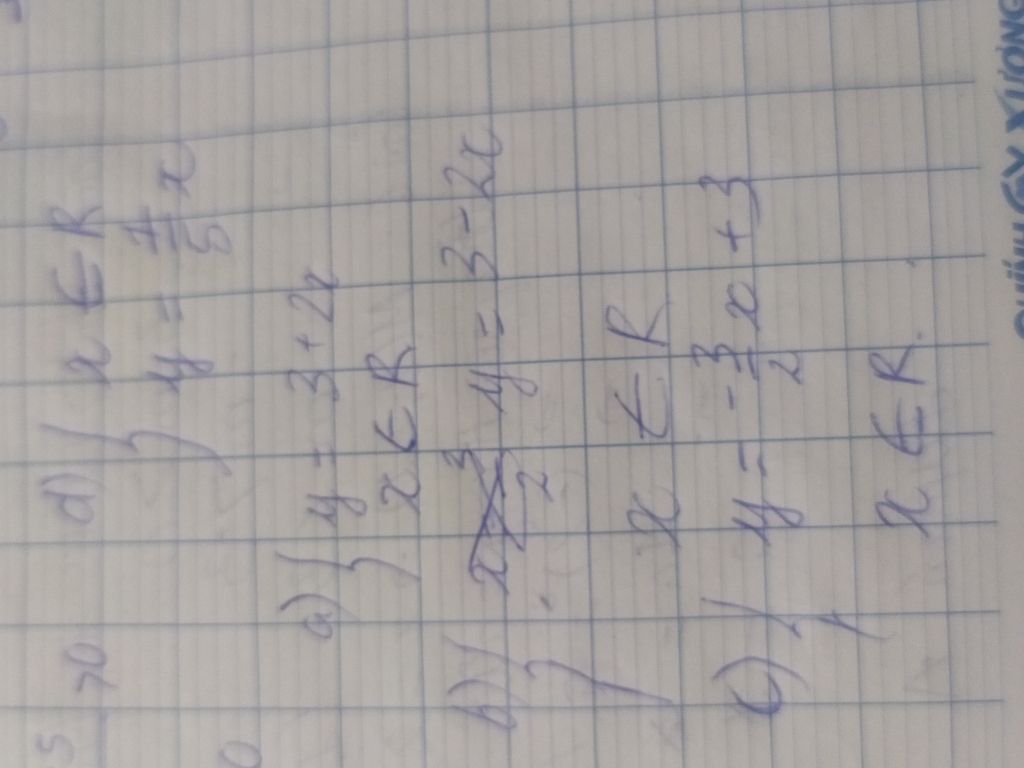 d) { x ∈ R
y = \frac{1}{5} x
a) { y = 3 + 2x
x ∈ R
b) { y = 3 - 2x
x ∈ R
c) { y = -\frac{3}{2} x + 3
x ∈ R.